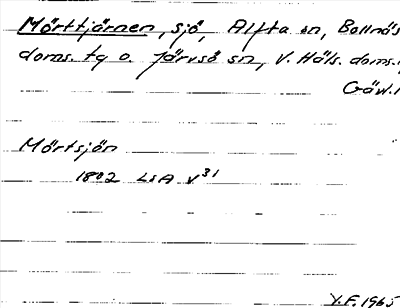 Mörttjärnen, sjö, Alfta sn, Bollnäs
doms. tg o. Järvsö sn, V. Häls. doms.
Gäv.l
Mörtsjön
1802 LsA V31
Y.F. 1965